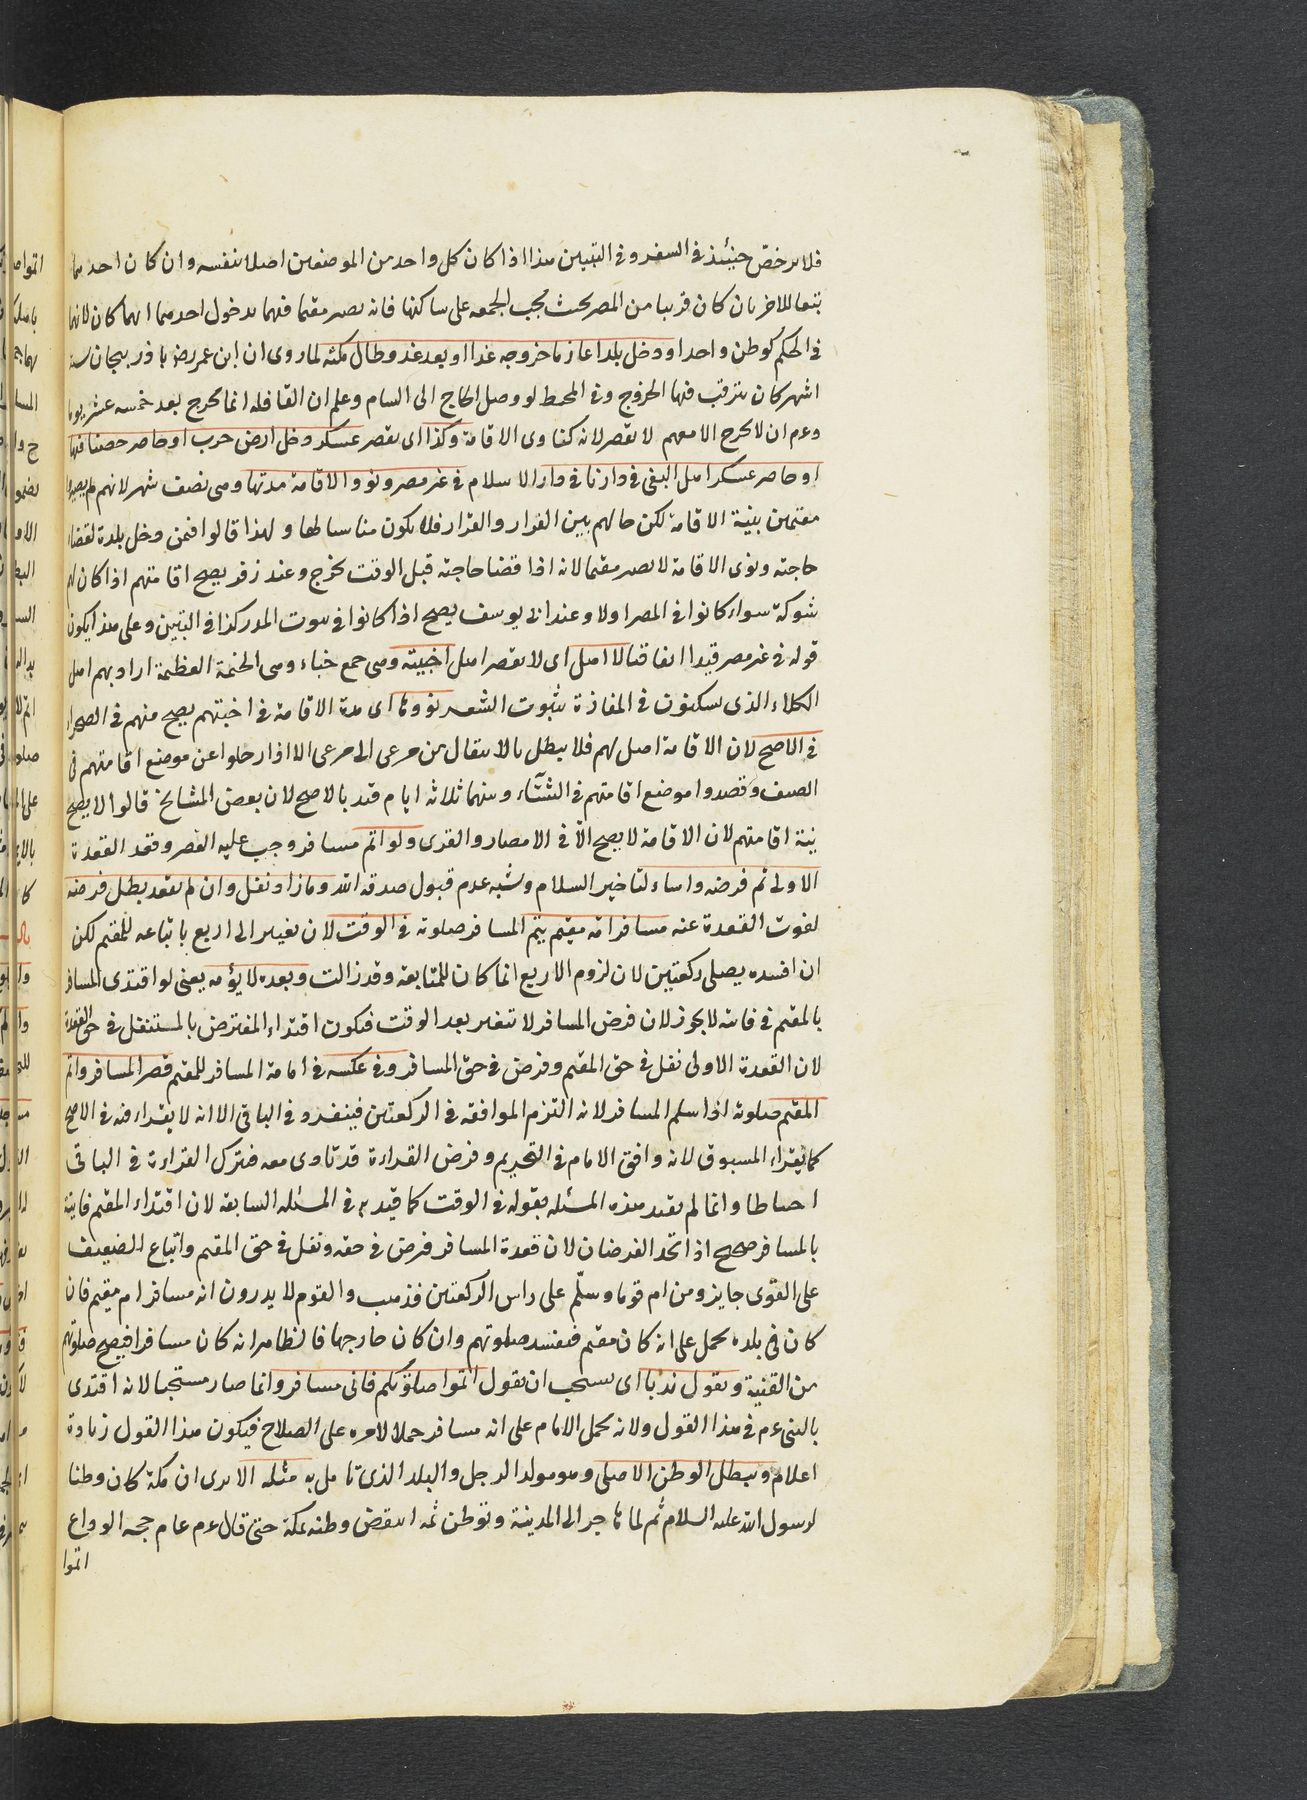 فلا يرخص حينئذ في السفر وفي التبيين هذا اذا كان كل واحد من الموضعين اصلا بنفسه وان كان احدهما
تبعا للاخر بان كان قريبا من المصر بحيث يجب الجمعه على ساكنها فانه يصير مقيما فيهما بدخول احدهما ايهما كان لانهما
في الحكم كوطن واحد او دخل بلدا عازما خروجه غدا او بعد غد وطال مكثه لما روى ان ابن عمر رض باذربيجان ستة
اشهر كان يترقب فيها الخروج وفي المحيط لو وصل الحاج الى الشام وعلم ان القافله انما تخرج بعد خمسه عشر يوما
وعزم ان لا يخرج الا معهم لا يقصر لانه كناوى الاقامة وكذا اى يقصر عسكر دخل ارض حرب او حاصر حصنا فيها
او حاصر عسكر اهل البغى في دارنا في دار الاسلام في غير مصر ونووا الاقامة مدتها وهى نصف شهر لانهم لم يصيروا
مقيمين بنية الاقامة لكن حالهم بين الفرار والقرار فلا يكون مناسا لها ولهذا قالوا فيمن دخل بلدة لقضاء
حاجته ونوى الاقامة لا يصير مقيما لانه اذا قضا حاجته قبل الوقت يخرج وعند زفر يصح اقامتهم اذا كان لهم
شوكة سواء كانوا في المصر اولا وعند ابى يوسف يصح اذا كانوا في بيوت المدر كذا في التبيين وعلى هذا يكون
قوله في غير مصر قيدا اتفاقيا لا اهل اى لا يقصر اهل اخبية وهى جمع خباء وهى الخيمة العظيمة اراد بهم اهل
الكلاء الذى يسكنون في المفازة بيوت الشعر نووها اى مدة الاقامة في اخبيتهم يصح منهم في الصحراء
في الاصح لان الاقامة اصل لهم فلا يبطل بالانتقال من مرعى الى مرعى الا اذا رحلوا عن موضع اقامتهم في
الصيف وقصدوا موضع اقامتهم في الشتاء وبينهما ثلاثة ايام قيد بالاصح لان بعض المشايخ قالوا لا يصح
نية اقامتهم لان الاقامة لا يصح الا في الامصار والقرى ولو اتم مسافر وجب عليه القصر وقعد القعدة
الاولى تم فرضه واساء لتاخير السلام وشبه عدم قبول صدقة الله وما زاد نفل وان لم يقعد بطل فرضه
لفوت القعدة عنه مسافر امه مقيم يتم المسافر صلوته في الوقت لان تغير الى اربع باتباعه للمقيم لكن
ان افسده يصلى ركعتين لان لزوم الاربع انما كان للمتابعة وقد زالت وبعده لا يؤمه يعنى لو اقتدى المسافر
بالمقيم في فائته لا يجوز لان فرض المسافر لا يتغير بعد الوقت فيكون اقتداء المفترض بالمتنفل في حق القعدة
لان القعدة الاولى نفل في حق المقيم وفرض في حق المسافر وفي عكسه في امامة المسافر للمقيم قصر المسافر واتم
المقيم صلوته اذا سلم المسافر لانه التزم الموافقه في الركعتين فينفرد في الباقى الا انه لا يقراء فيه في الاصح
كما يقراء المسبوق لانه وافق الامام في التحريم وفرض القراءة قد تاوى معه فيترك القراءة في الباقى
احتياطا وانما لم يقيد هذه المسئله بقوله في الوقت كما قيد به في المسئله السابقه لان اقتداء المقيم فايتة
بالمسافر صحيح اذ اتحد الفرضان لان قعدة المسافر فرض في حقه ونفل في حق المقيم واتباع الضعيف
على القوى جايز ومن ام قوما وسلم على راس الركعتين فذهب والقوم لا يدرون انه مسافر ام مقيم فان
كان في بلده يحمل على انه كان مقيم فيفسد صلوتهم وان كان خارجها فالظاهر انه كان مسافرا فيصح صلوتهم
من القنية ويقول ندبا اى يستحب ان يقول اتموا صلوتكم فانى مسافر وانما صار مستحبا لانه اقتدى
بالنبى عم في هذا القول ولانه يحمل الامام على انه مسافر حملا لامره على الصلاح فيكون هذا القول زيادة
اعلام ويبطل الوطن الاصلى وهو مولد الرجل والبلد الذى تاهل به مثله الا يرى ان مكة كان وطنا
لرسول الله عليه السلام ثم لما هاجر الى المدينة وتوطن ثمه انتقض وطنه بمكة حتى قال عم عام حجه الوداع
اتموا